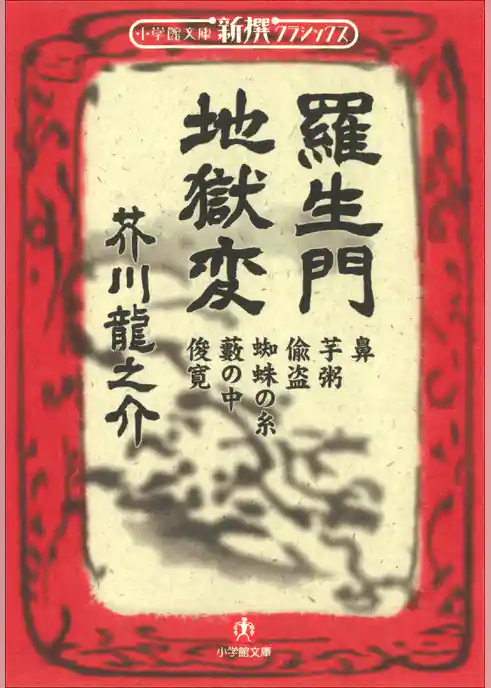 小学館文庫 新撰クラシックス
羅生門
地獄変
鼻
芋粥
偸盗
蜘蛛の糸
藪の中
俊寛
芥川龍之介
小学館文庫